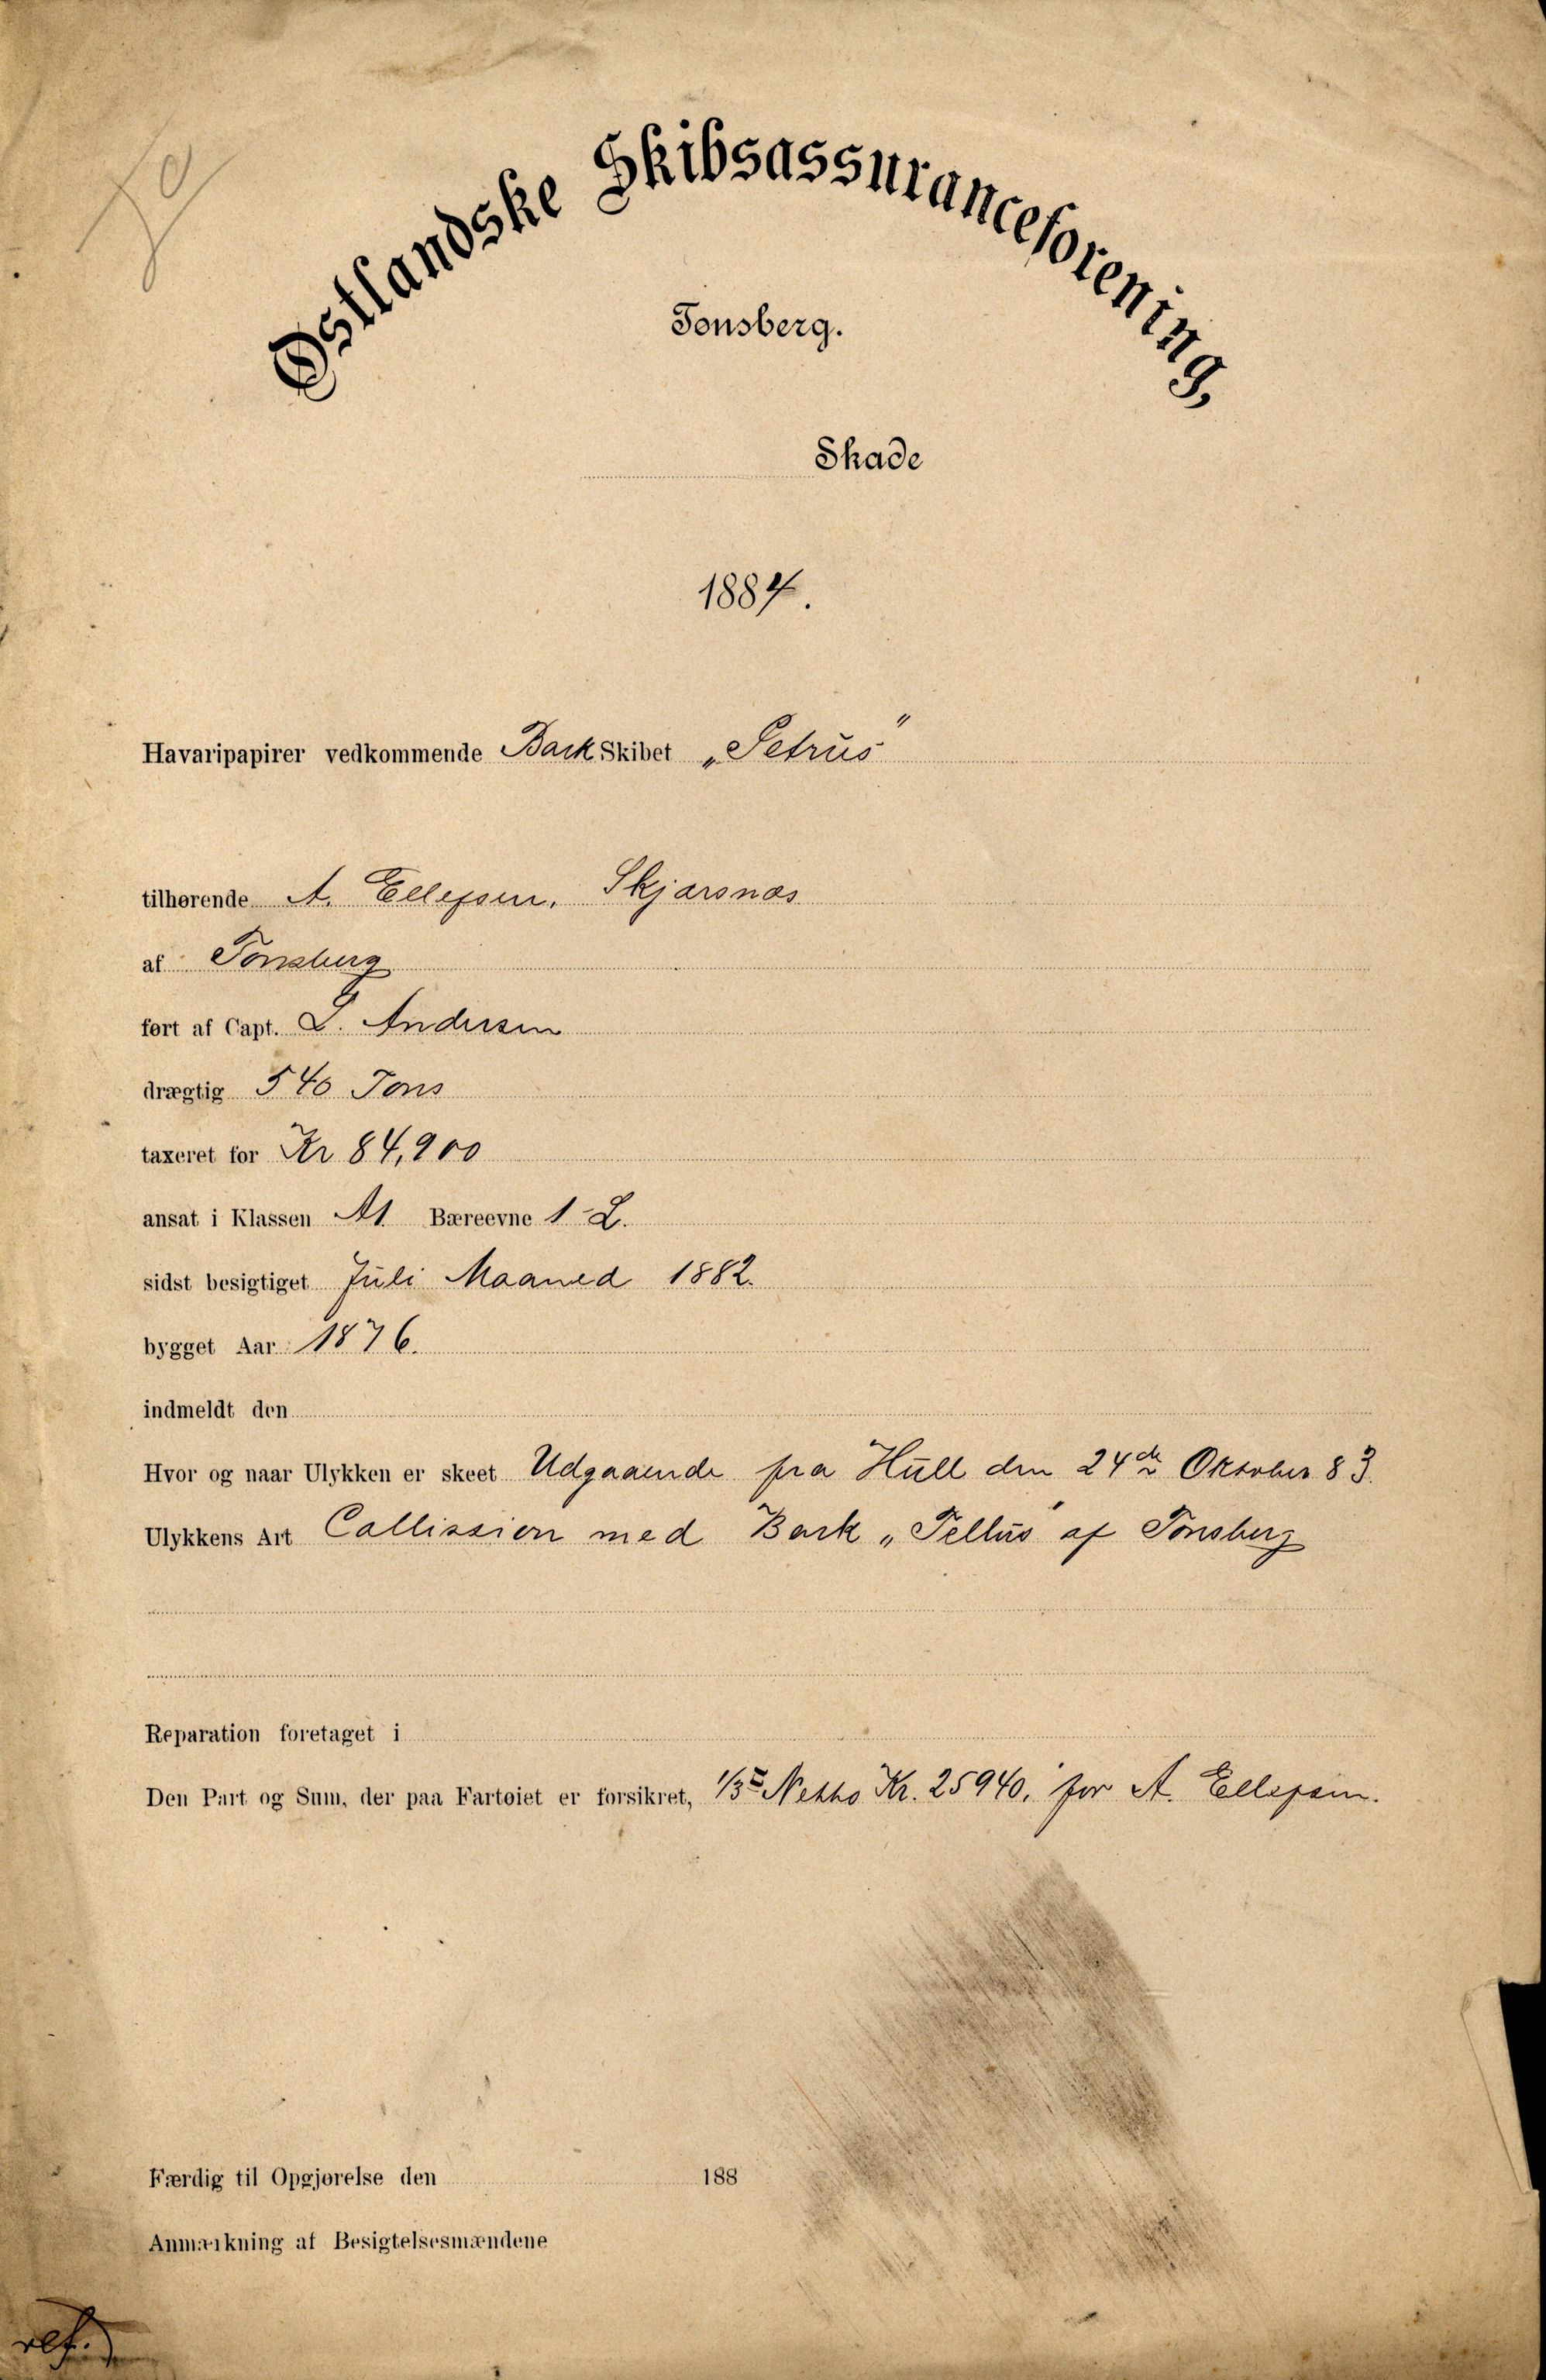 Østlandske Skibsassuranceforening,
Tønsberg.
Skade
1884.
Havaripapirer vedkommende Bark Skibet „Petrus“
tilhørende A. Ellefsen, Skjærsnæs
af Tønsberg
ført af Capt. L. Andersen
drægtig 540 Tons
taxeret for Kr 84,900
ansat i Klassen A1 Bæreevne 1-L.
sidst besigtiget Juli Maaned 1882.
bygget Aar 1876.
indmeldt den
Hvor og naar Ulykken er skeet Udgaaende fra Hull den 24de Oktober 83.
Ulykkens Art Collission med Bark „Tellus“ af Tønsberg
Reparation foretaget i
Den Part og Sum, der paa Fartøiet er forsikret, Netto Kr. 25940. for A. Ellefsen.
Færdig til Opgjørelse den 188
Anmærkning af Besigtelsesmændene
ref.